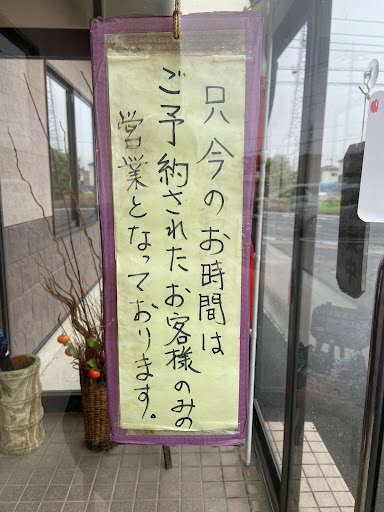 只今のお時間は
ご予約されたお客様のみの
営業となっております。